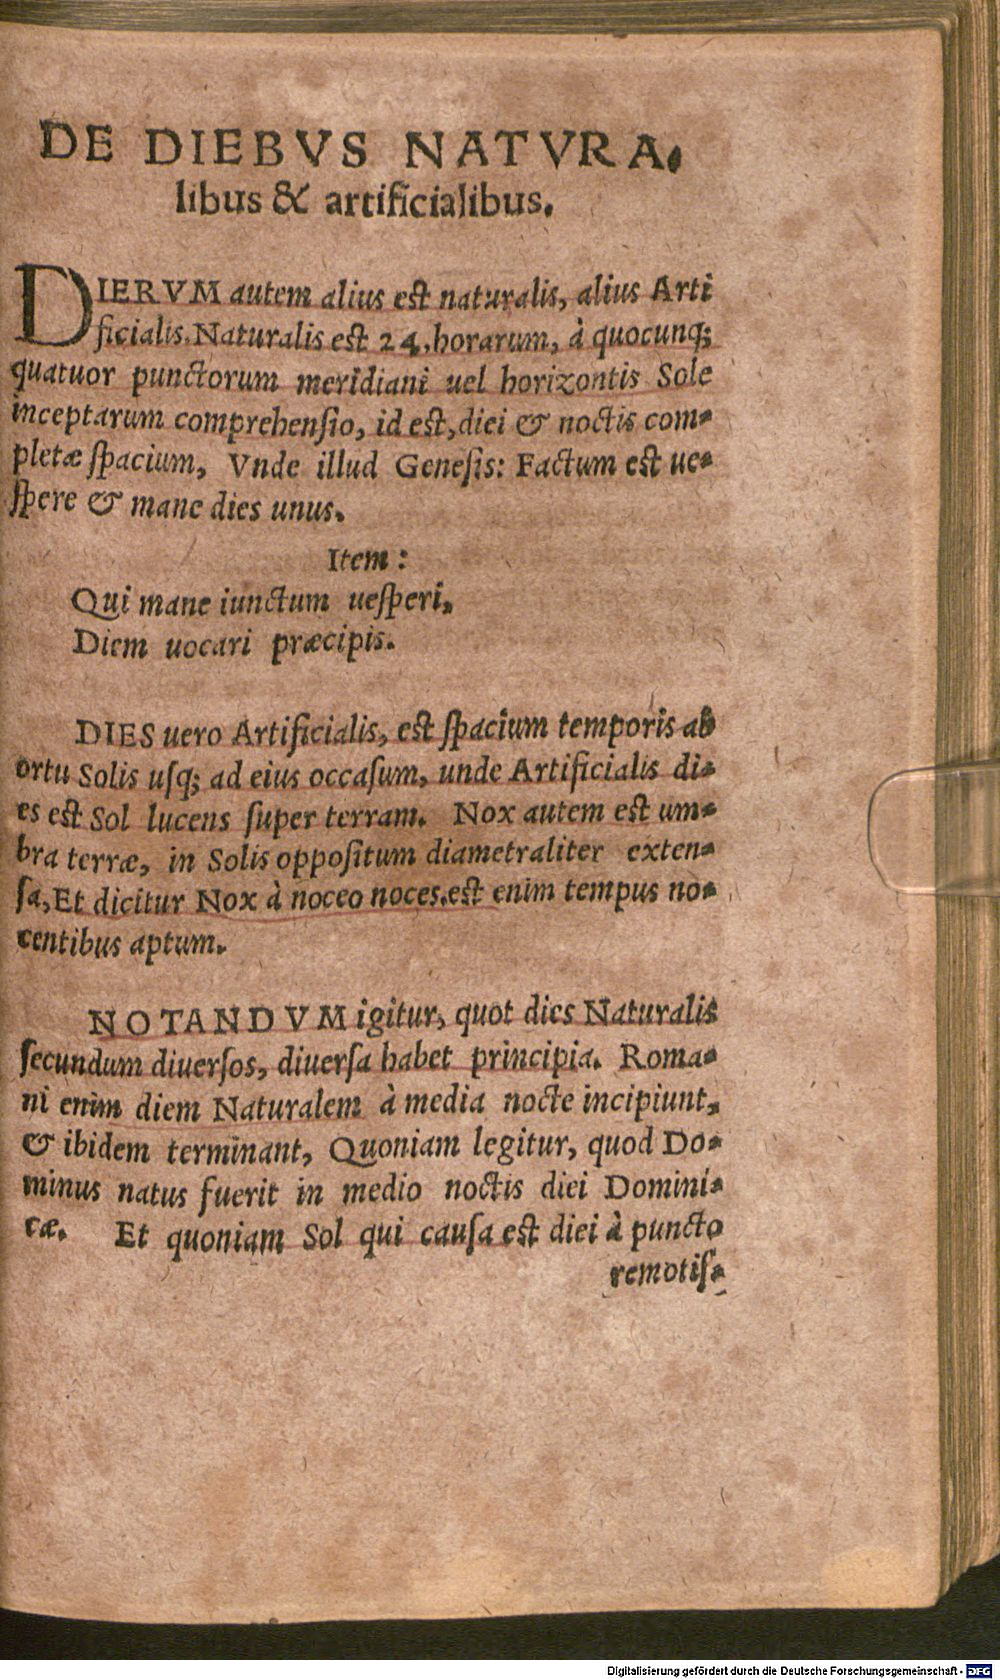 DE DIEBVS NATVRA-
libus & artificialibus.
DIERVM autem alius est naturalis, alius Arti
ficialis. Naturalis est 24. horarum, à quocunq;
quatuor punctorum meridiani uel horizontis Sole
inceptarum comprehensio, id est, diei & noctis com-
pletæ spacium, Vnde illud Genesis: Factum est ue-
spere & mane dies unus.
Item:
Qui mane iunctum uesperi,
Diem uocari præcipis.
DIES uero Artificialis, est spacium temporis ab
ortu Solis usq; ad eius occasum, unde Artificialis di-
es est Sol lucens super terram. Nox autem est um-
bra terræ, in Solis oppositum diametraliter exten-
sa, Et dicitur Nox à noceo noces. est enim tempus no-
centibus aptum.
NOTANDVM igitur, quot dies Naturalis
secundum diuersos, diuersa habet principia. Roma-
ni enim diem Naturalem à media nocte incipiunt,
& ibidem terminant, Quoniam legitur, quod Do-
minus natus fuerit in medio noctis diei Domini-
cæ. Et quoniam Sol qui causa est diei à puncto
remotis-
Digitalisierung gefördert durch die Deutsche Forschungsgemeinschaft - DFG